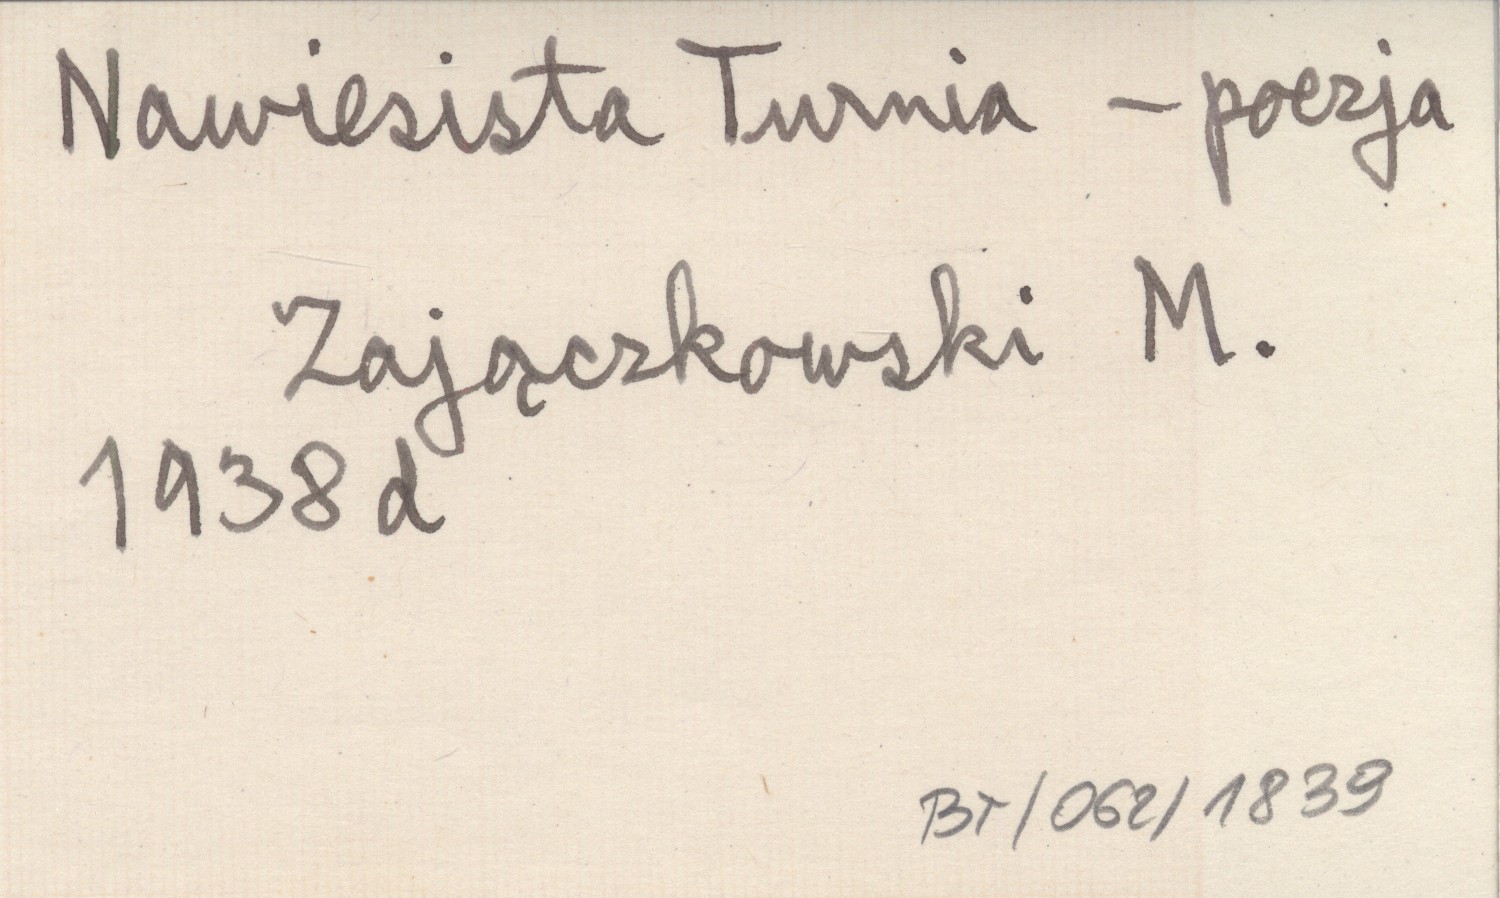 Nawiesista Turnia - poezja
Zajączkowski M.
1938 d
BT/062/1839